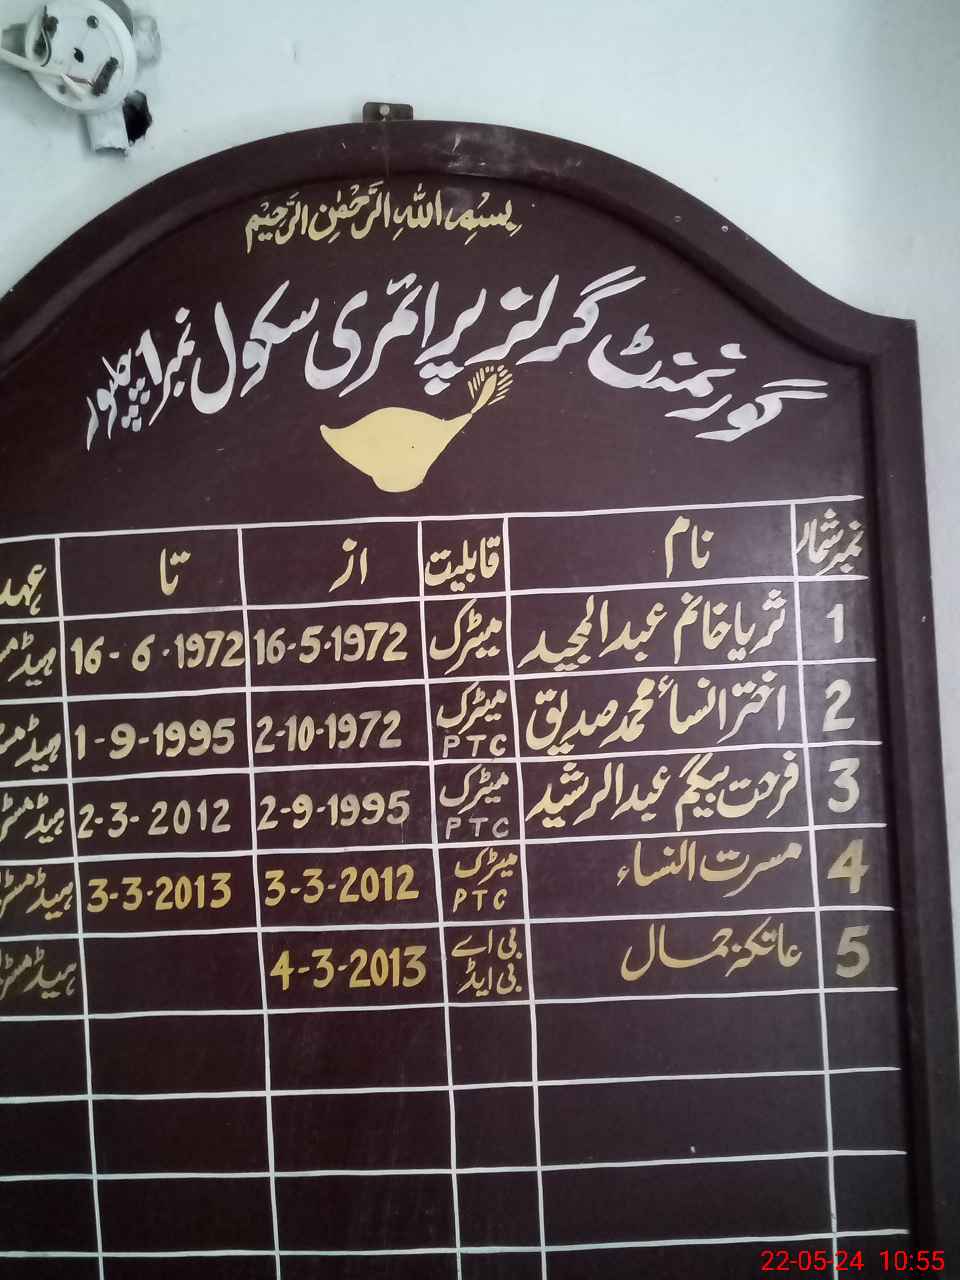 بِسْمِ اللهِ الرَّحْمٰنِ الرَّحِيْمِ
گورنمنٹ گرلز پرائمری سکول نمبر 1
نمبر شمار نام قابلیت از تا
1 ثریا خانم عبدالمجید میٹرک 16-5-1972 16-6-1972
2 اختر انساء محمد صدیق میٹرک PTC 2-10-1972 1-9-1995
3 فرحت بیگم عبدالرشید میٹرک PTC 2-9-1995 2-3-2012
4 مسرت النساء میٹرک PTC 3-3-2012 3-3-2013
5 عاتکہ جمال بی اے بی ایڈ 4-3-2013
22-05-24 10:55